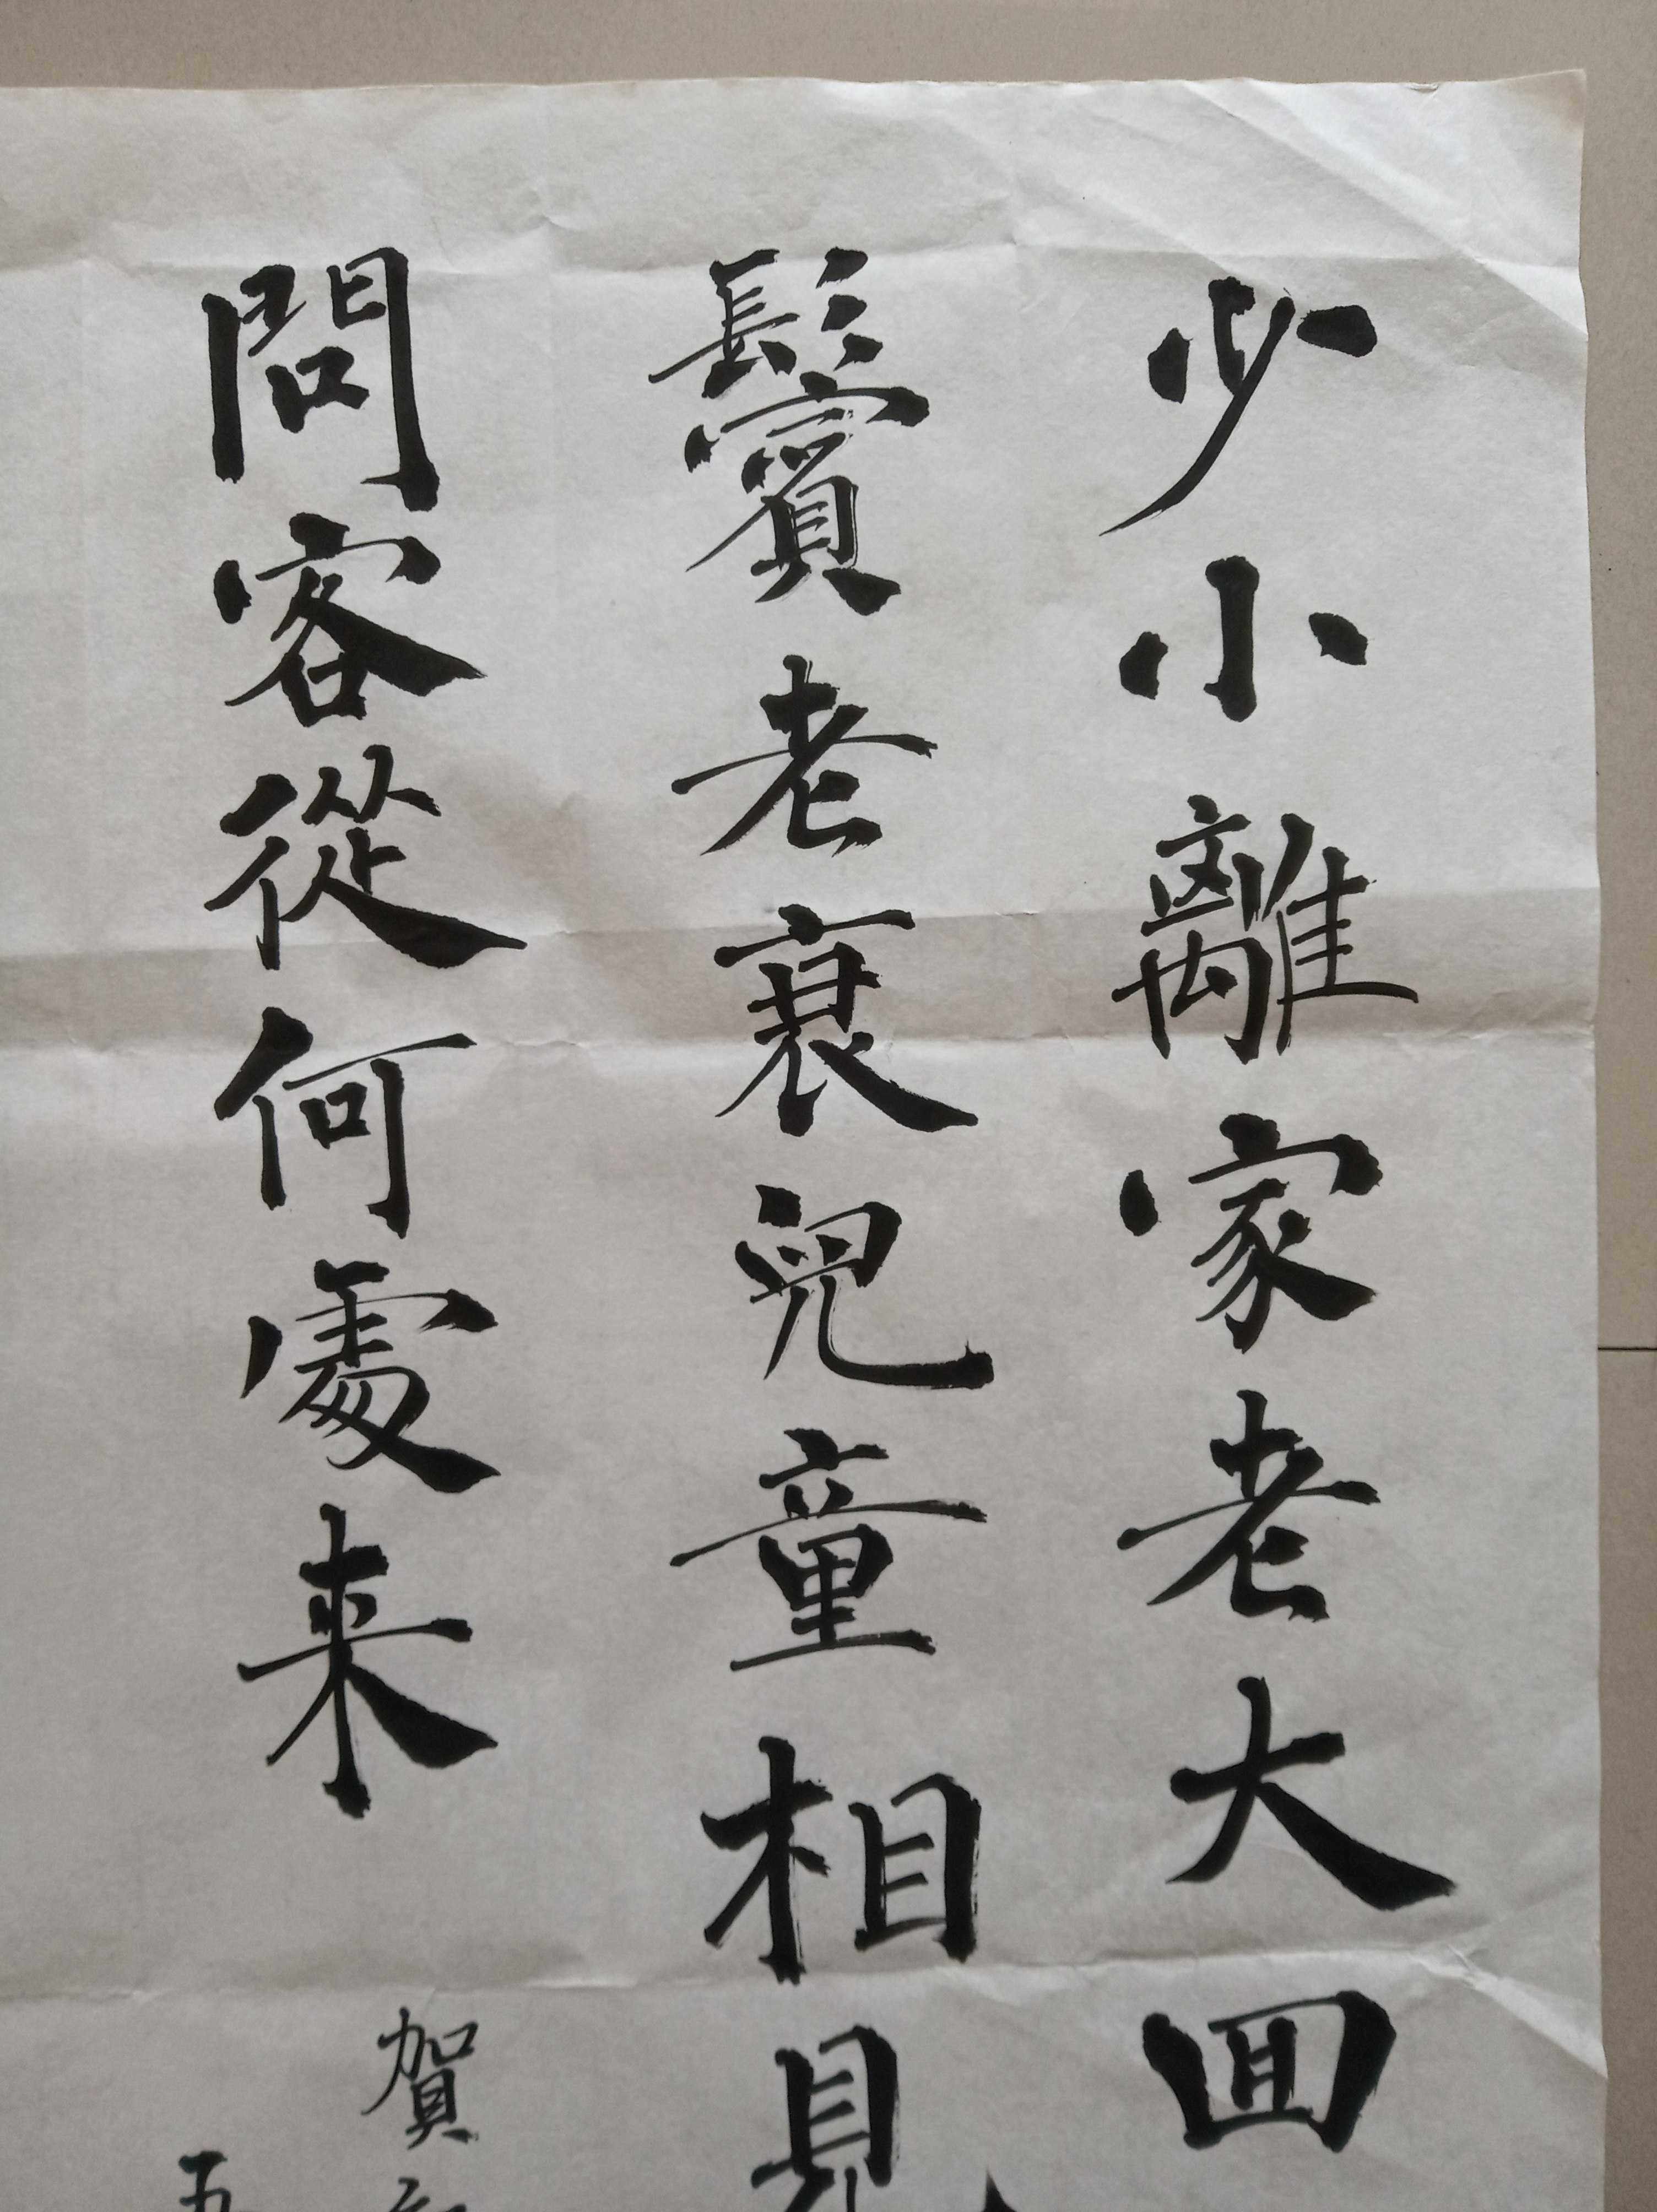 少小離家老大囬
鬢老衰兒童相見
問客從何處来
賀
五